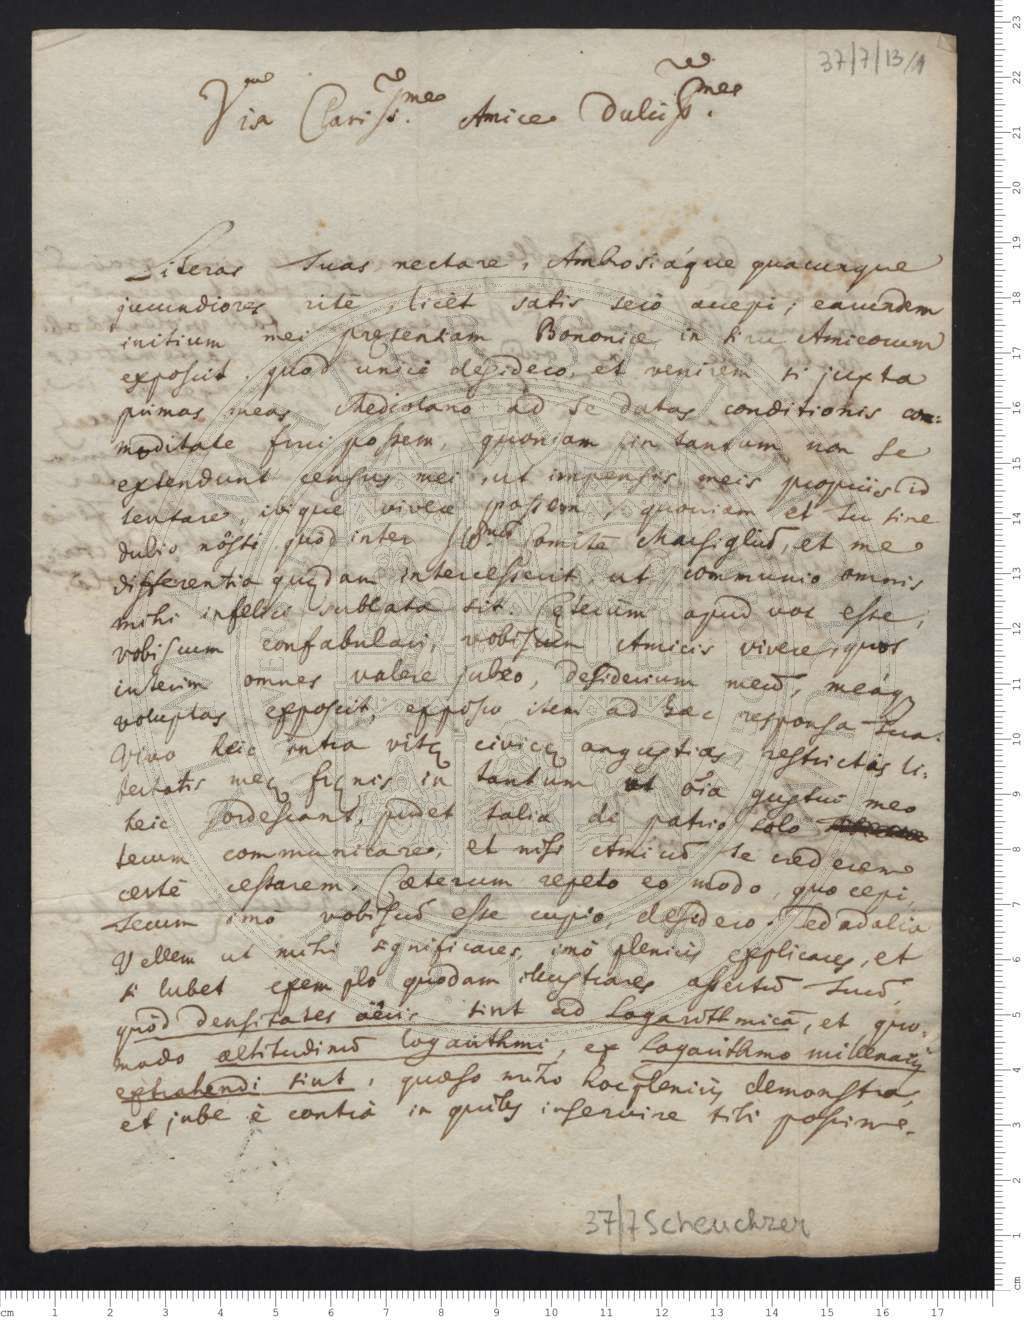 37/7/13/1
Vir Clariss.me Amice Dulciss.me
Literas tuas nectare, Ambrosiáque quacunque
jucundiores ritè, licèt satis serò accepi; earundem
initium mei pręsentiam Bononiæ in sinu Amicorum
exposcit. quod unicè desidero, et venirem si juxta
primas meas Mediolano ad te datas conditionis com:
moditate frui possem, quoniam in tantum non se
extendunt census mei, ut impensis meis propriis id
tentare, ibique vivere possem, quoniam et tu sine
dubio nôsti quòd inter Ill.mū Comitē Marsigliū, et me
differentia quędam intercesserit, ut communio omnis
mihi infelici sublata sit. Cęterùm apud vos esse,
vobiscum confabulari, vobiscum Amicis vivere, quos
interim omnes valere jubeo, desiderium meū, meáq
voluptas exposcit, expósco item ad hæc responsa tua.
Vivo heic intra vitę civicę angustias, restrictas li:
bertatis meę fręnis in tantum ut oīa gustui meo
heic sordescant, pudet talia de patrio solo
tecum communicare, et nisi Amicū te crederem
certè cessarem. Cæterum repeto eo modo, quo cepi,
tecum imò vobiscū esse cupio, desidero. Sed ad alia
Vellem ut mihi significares, imò plenius explicares, et
si lubet exemplo quodam illustrares assertū tuū,
quòd densitates aëris sint ad Logarithmicā, et quo:
modo altitudinū logarithmi, ex Logarithmo millenarij
extrahendi sint, quæso mihi hoc plenius demonstra,
et jube è contrà in quibus inservire tibi possim.
37/7 Scheuchzer